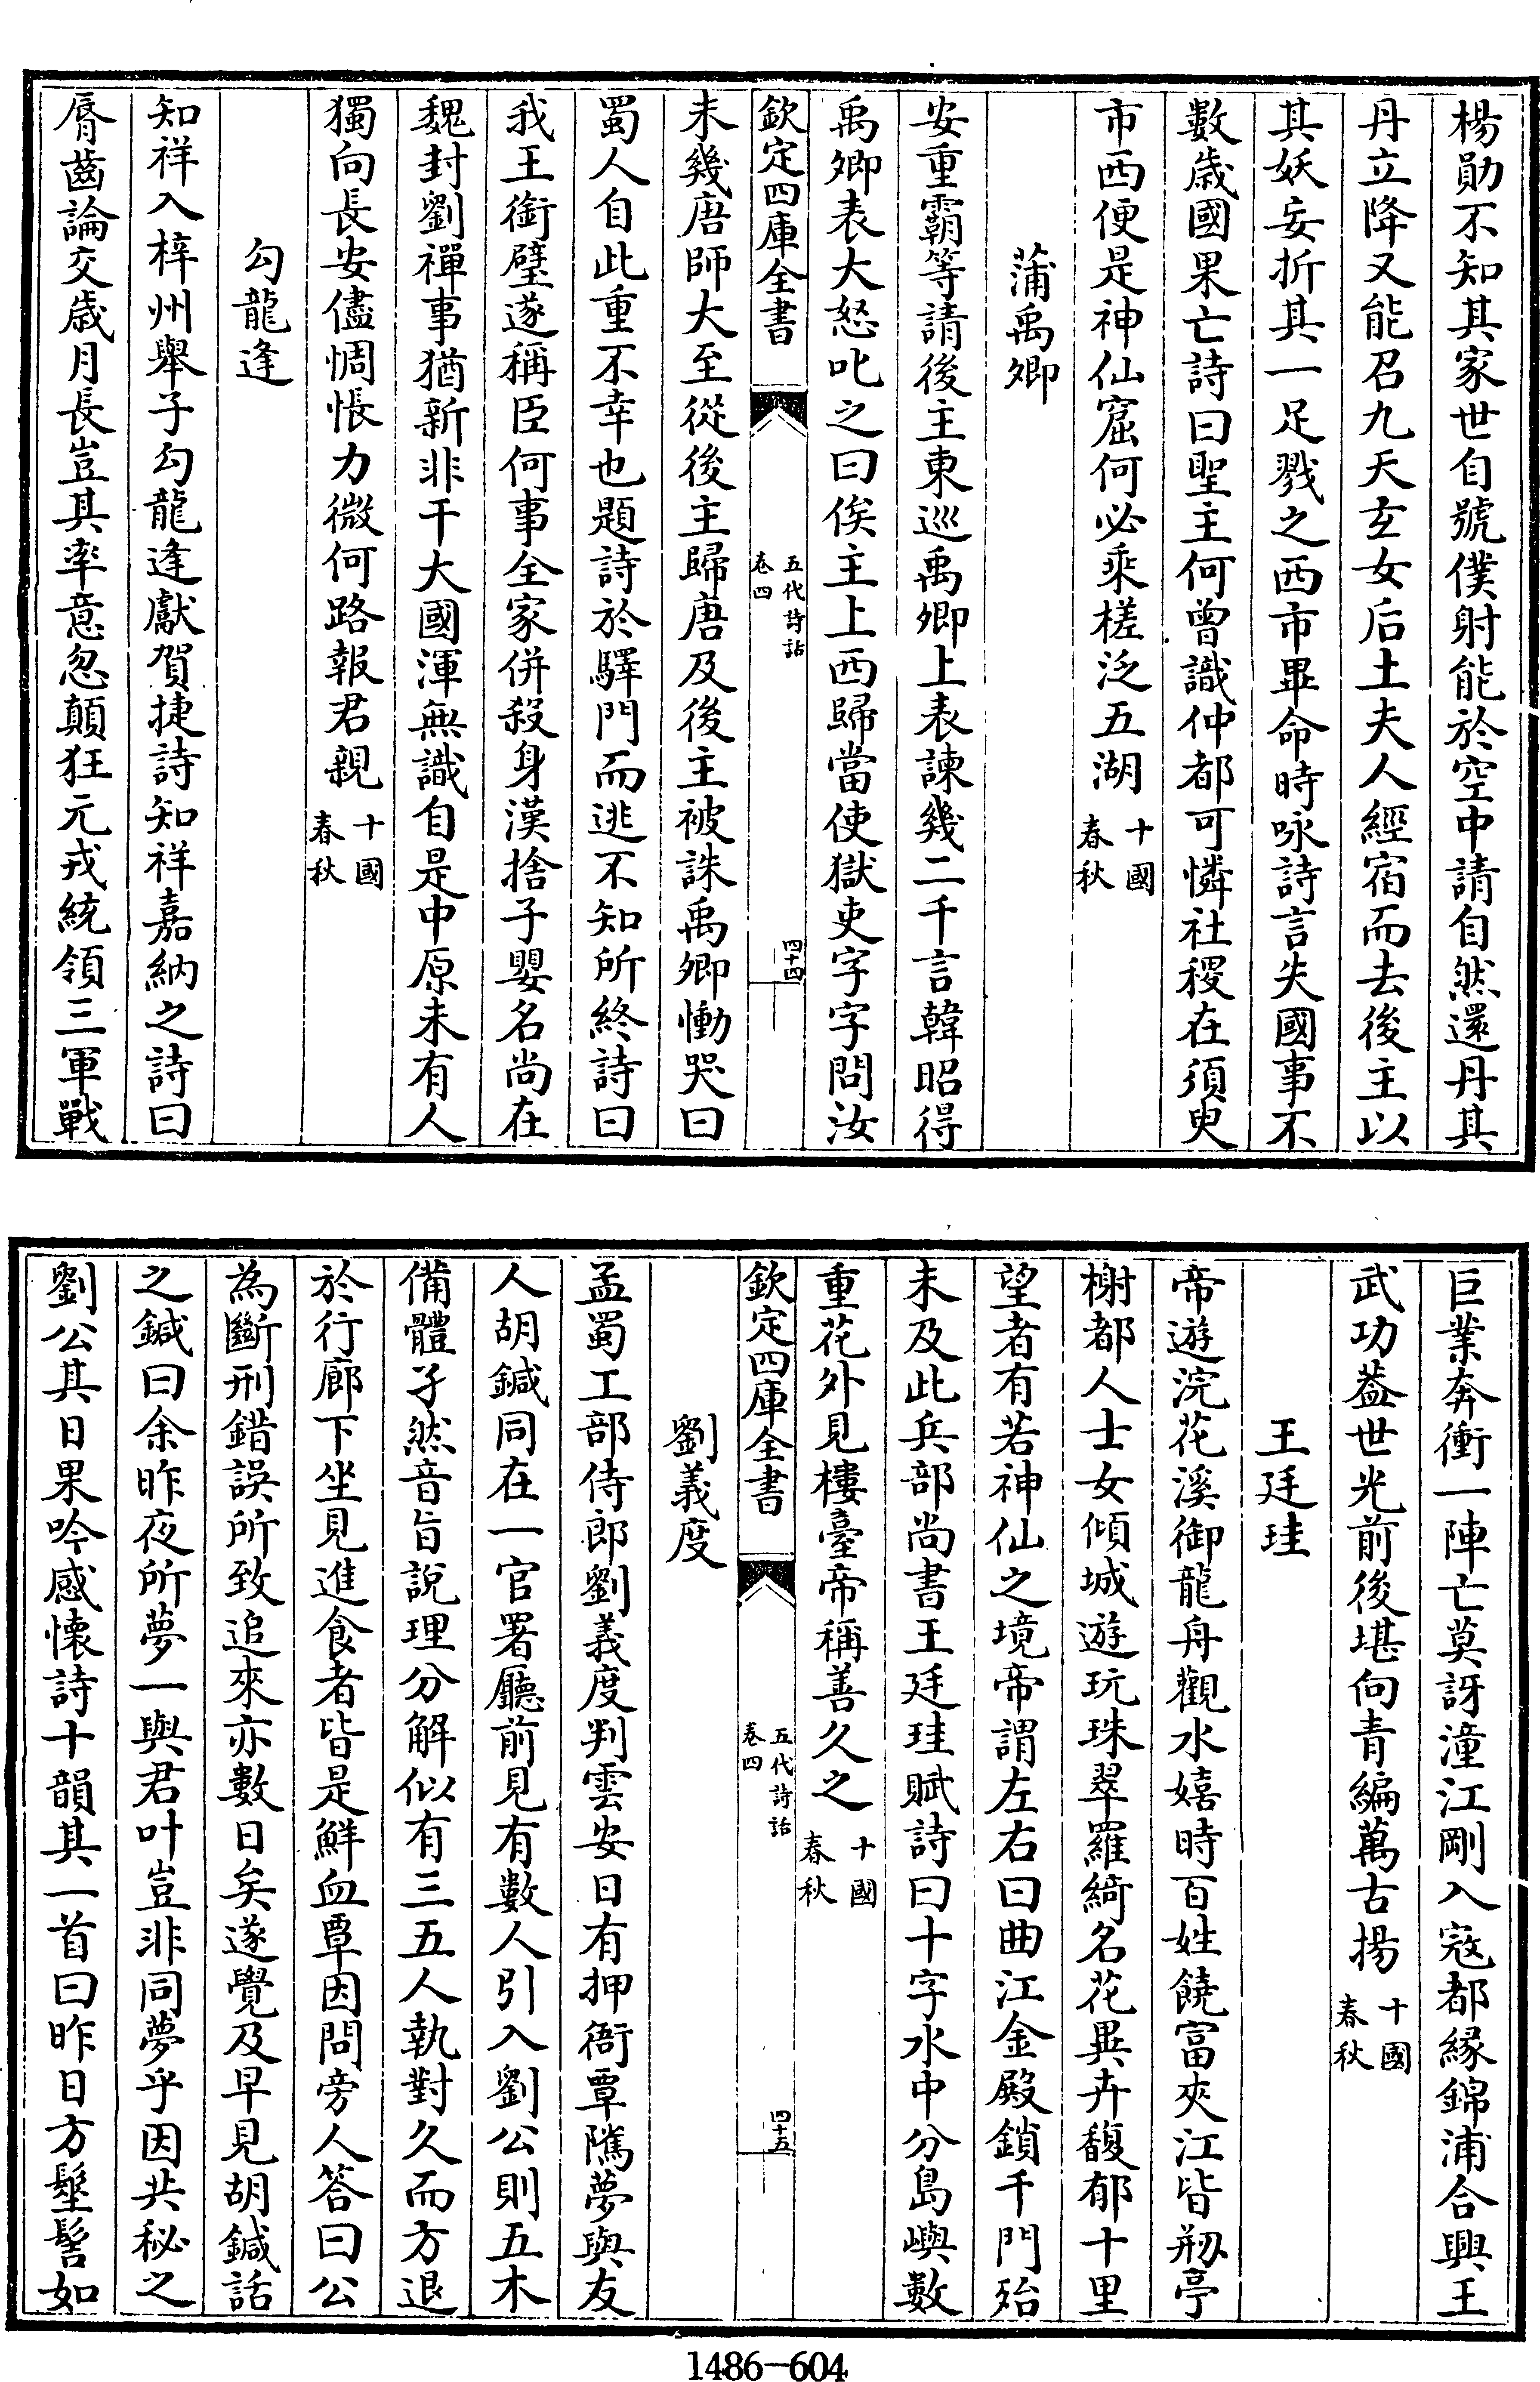 楊勛不知其家世自號僕射能於空中請自然還丹其
丹立降又能召九天玄女后土夫人經宿而去後主以
其妖妄折其一足戮之西市畢命時咏詩言失國事不
數歲國果亡詩曰聖主何曾識仲都可憐社稷在須臾
市西便是神仙窟何必乘槎泛五湖十國春秋
蒲禹卿
安重霸等請後主東巡禹卿上表諫幾二千言韓昭得
禹卿表大怒叱之曰俟主上西歸當使獄吏字字問汝
欽定四庫全書 五代詩話 卷四 四十四
未幾唐師大至從後主歸唐及後主被誅禹卿慟哭曰
蜀人自此重不幸也題詩於驛門而逃不知所終詩曰
我王銜璧遂稱臣何事全家併殺身漢捨子嬰名尚在
魏封劉禪事猶新非干大國渾無識自是中原未有人
獨向長安儘惆悵力微何路報君親十國春秋
勾龍逢
知祥入梓州舉子勾龍逢獻賀捷詩知祥嘉納之詩曰
脣齒論交歲月長豈其率意忽顛狂元戎統領三軍戰
巨業奔衝一陣亡莫訝潼江剛入寇都緣錦浦合興王
武功葢世光前後堪向青編萬古揚十國春秋
王廷珪
帝遊浣花溪御龍舟觀水嬉時百姓饒富夾江皆剏亭
榭都人士女傾城遊玩珠翠羅綺名花異卉馥郁十里
望者有若神仙之境帝謂左右曰曲江金殿鎖千門殆
未及此兵部尚書王廷珪賦詩曰十字水中分島嶼數
重花外見樓臺帝稱善久之十國春秋
欽定四庫全書 五代詩話 卷四 四十五
劉義度
孟蜀工部侍郎劉義度判雲安日有押衙覃隲夢與友
人胡鍼同在一官署廳前見有數人引入劉公則五木
備體孑然音旨說理分解似有三五人執對久而方退
於行廊下坐見進食者皆是鮮血覃因問旁人答曰公
為斷刑錯誤所致追來亦數日矣遂覺及早見胡鍼話
之鍼曰余昨夜所夢一與君叶豈非同夢乎因共秘之
劉公其日果吟感懷詩十韻其一首曰昨日方髽髻如
1486-604